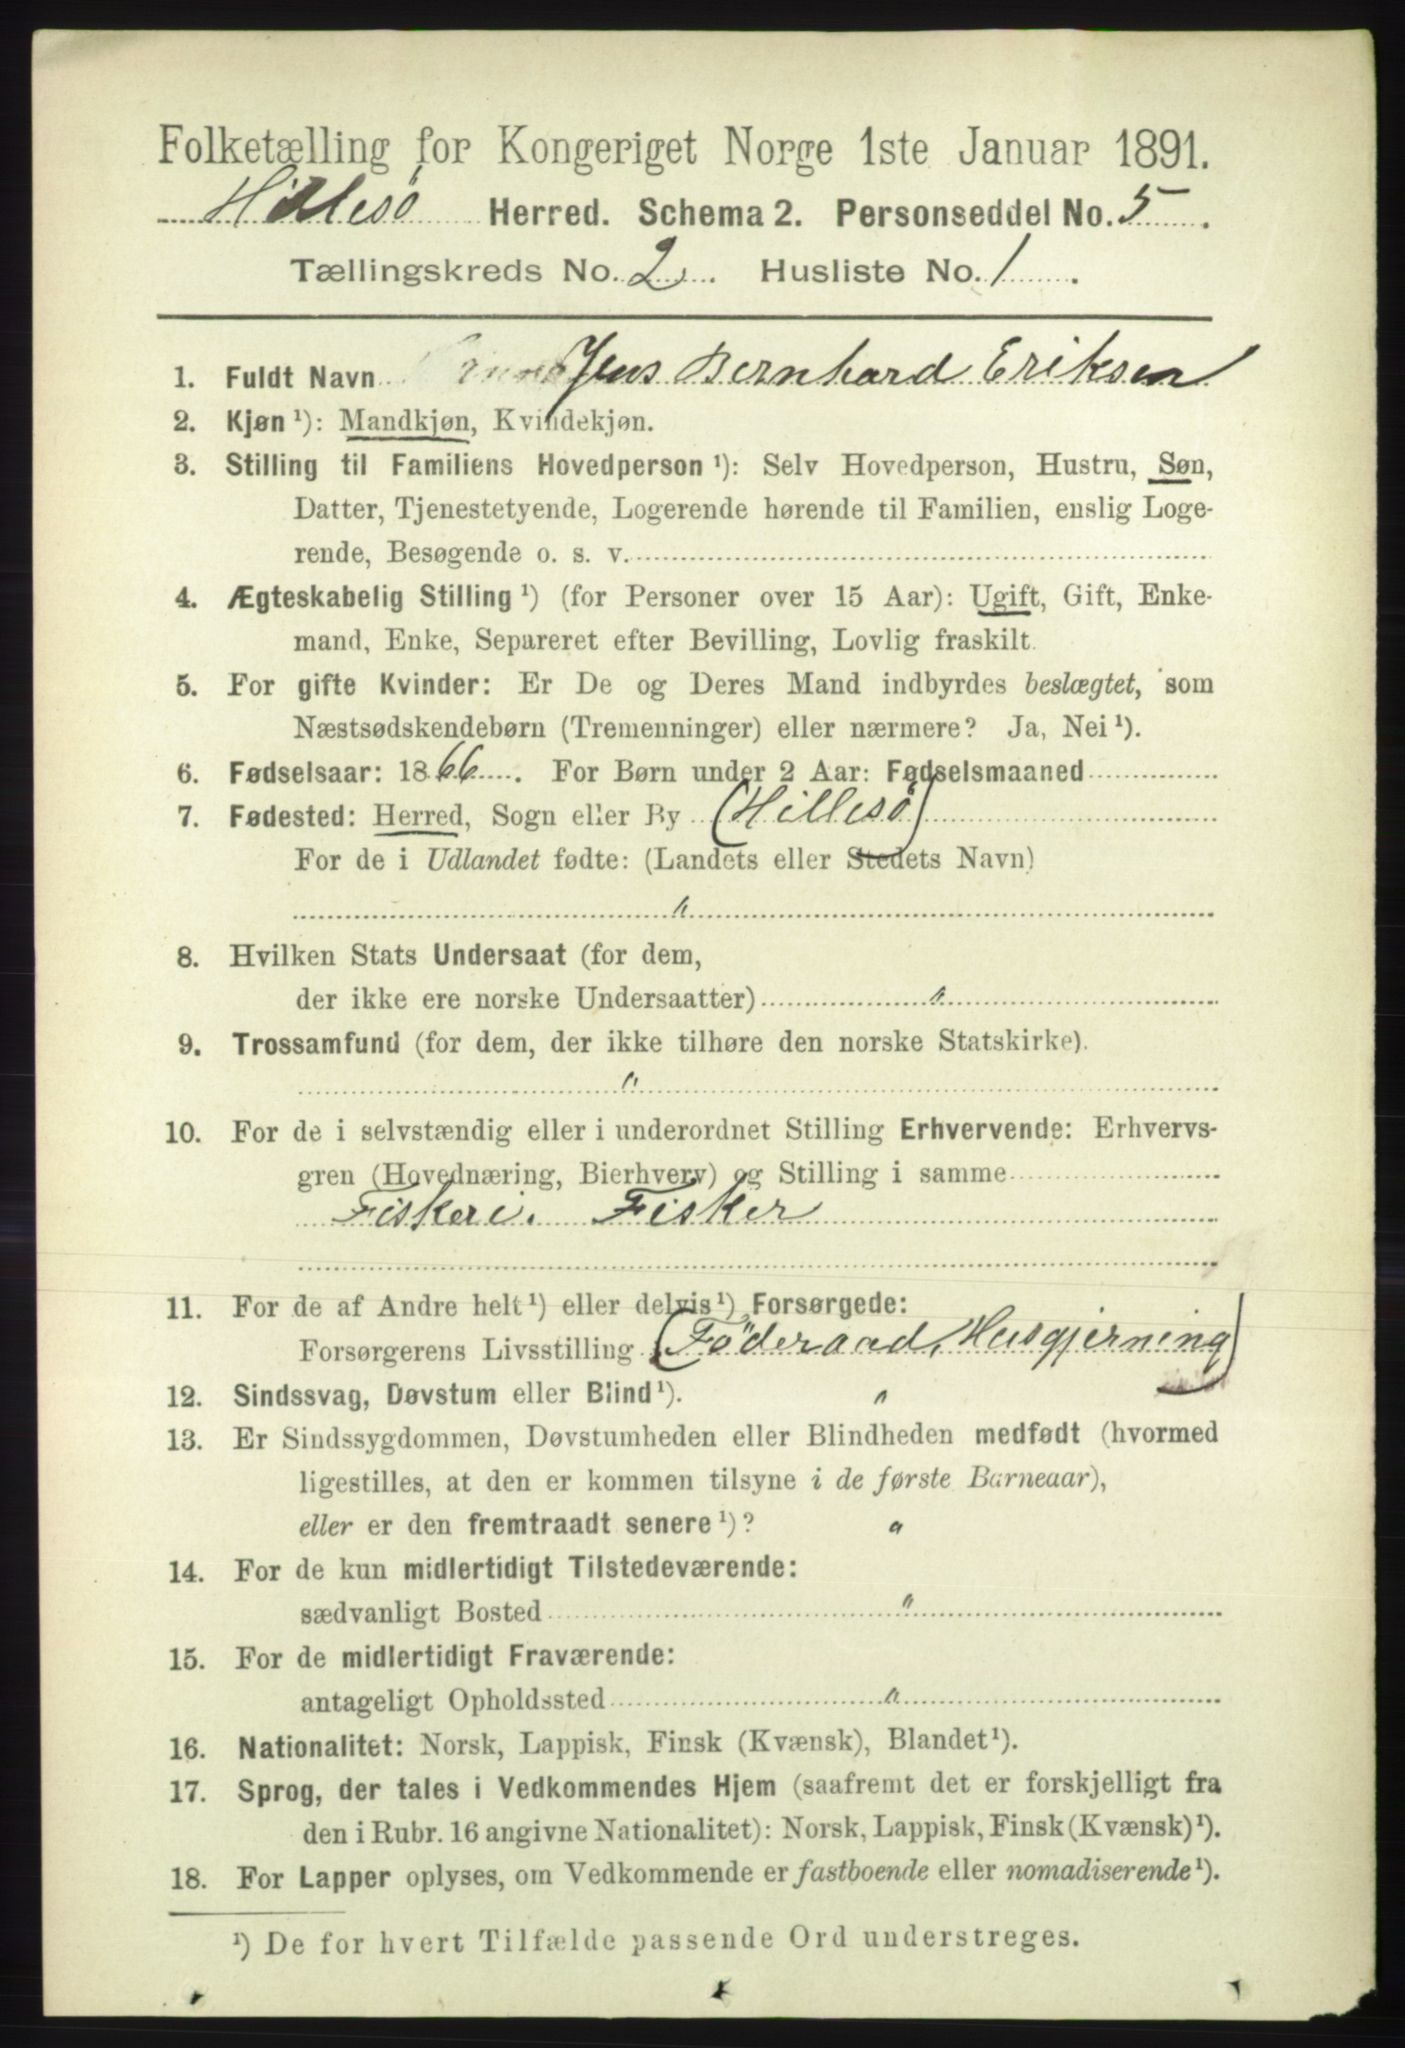 Folketælling for Kongeriget Norge 1ste Januar 1891.
Hillesö Herred. Schema 2. Personseddel No. 5.
Tællingskreds No. 2. Husliste No. 1.
1. Fuldt Navn Jens Bernhard Eriksen
2. Kjøn ¹): Mandkjøn, Kvindekjøn.
3. Stilling til Familiens Hovedperson ¹): Selv Hovedperson, Hustru, Søn,
Datter, Tjenestetyende, Logerende hørende til Familien, enslig Loge-
rende, Besøgende o. s. v.
4. Ægteskabelig Stilling ¹) (for Personer over 15 Aar): Ugift, Gift, Enke-
mand, Enke, Separeret efter Bevilling, Lovlig fraskilt.
5. For gifte Kvinder: Er De og Deres Mand indbyrdes beslægtet, som
Næstsødskendebørn (Tremenninger) eller nærmere? Ja, Nei ¹).
6. Fødselsaar: 1866. For Børn under 2 Aar: Fødselsmaaned
7. Fødested: Herred, Sogn eller By (Hillesö)
For de i Udlandet fødte: (Landets eller Stedets Navn)
"
8. Hvilken Stats Undersaat (for dem,
der ikke ere norske Undersaatter) "
9. Trossamfund (for dem, der ikke tilhøre den norske Statskirke).
"
10. For de i selvstændig eller i underordnet Stilling Erhvervende: Erhvervs-
gren (Hovednæring, Bierhverv) og Stilling i samme
Fiskeri. Fisker
11. For de af Andre helt ¹) eller delvis ¹) Forsørgede:
Forsørgerens Livsstilling (Föderaad, Husgjerning)
12. Sindssvag, Døvstum eller Blind ¹). "
13. Er Sindssygdommen, Døvstumheden eller Blindheden medfødt (hvormed
ligestilles, at den er kommen tilsyne i de første Barneaar),
eller er den fremtraadt senere ¹)? "
14. For de kun midlertidigt Tilstedeværende:
sædvanligt Bosted "
15. For de midlertidigt Fraværende:
antageligt Opholdssted "
16. Nationalitet: Norsk, Lappisk, Finsk (Kvænsk), Blandet ¹).
17. Sprog, der tales i Vedkommendes Hjem (saafremt det er forskjelligt fra
den i Rubr. 16 angivne Nationalitet): Norsk, Lappisk, Finsk (Kvænsk) ¹).
18. For Lapper oplyses, om Vedkommende er fastboende eller nomadiserende ¹).
¹) De for hvert Tilfælde passende Ord understreges.